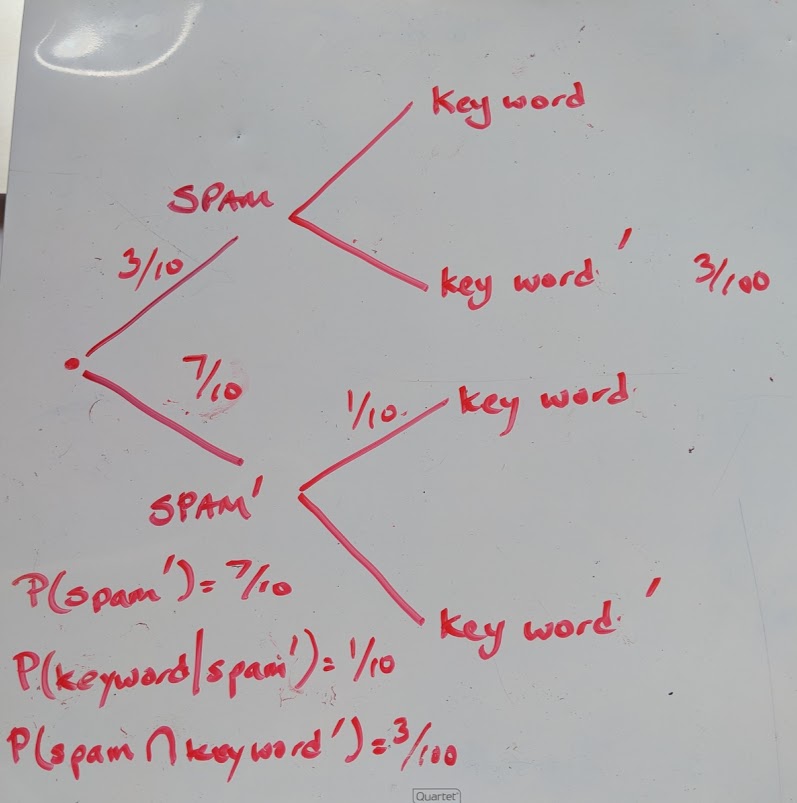 Key word
SPAM
3/10
key word ' 3/100
7/10
1/10. key word.
SPAM'
P(spam')= 7/10
key word. '
P(keyword|spam')= 1/10
P(spam ∩ keyword')= 3/100
Quartet